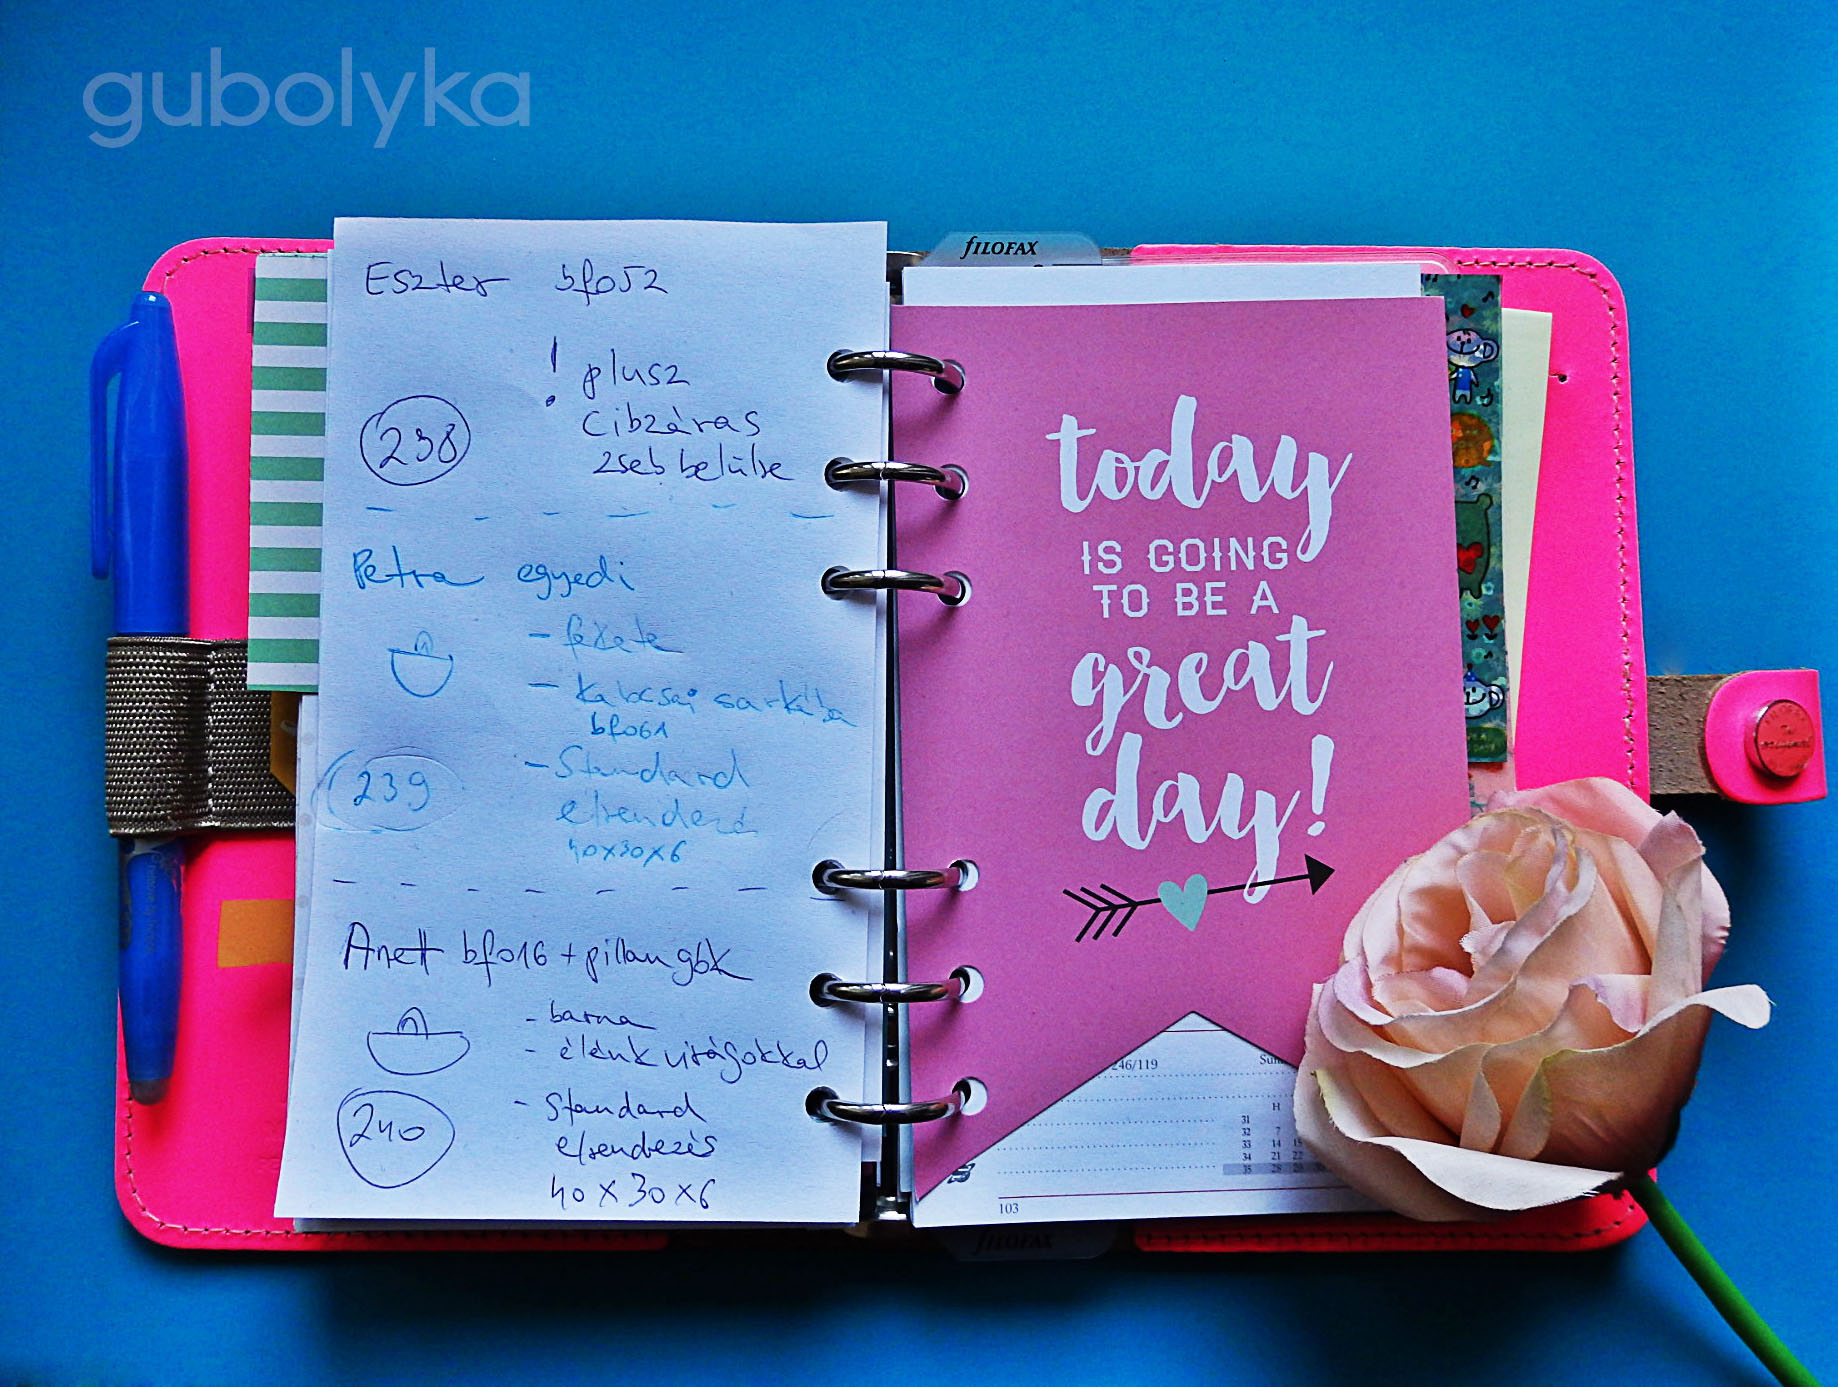 gubolyka
FILOFAX
Eszter bf052
! plusz
cibzáras
zseb belülre
238
Petra egyedi
- fekete
- kalocsai sarkába
bf061
- Standard
elrendezés
40x30x6
239
Anett bf016 + pillangók
- barna
- élénk virágokkal
- Standard
elrendezés
40 x 30 x 6
240
today
IS GOING
TO BE A
great
day!
246/119
H
31
32 7
33 14 15
34 21 22
35 28 29 30
103
FILOFAX